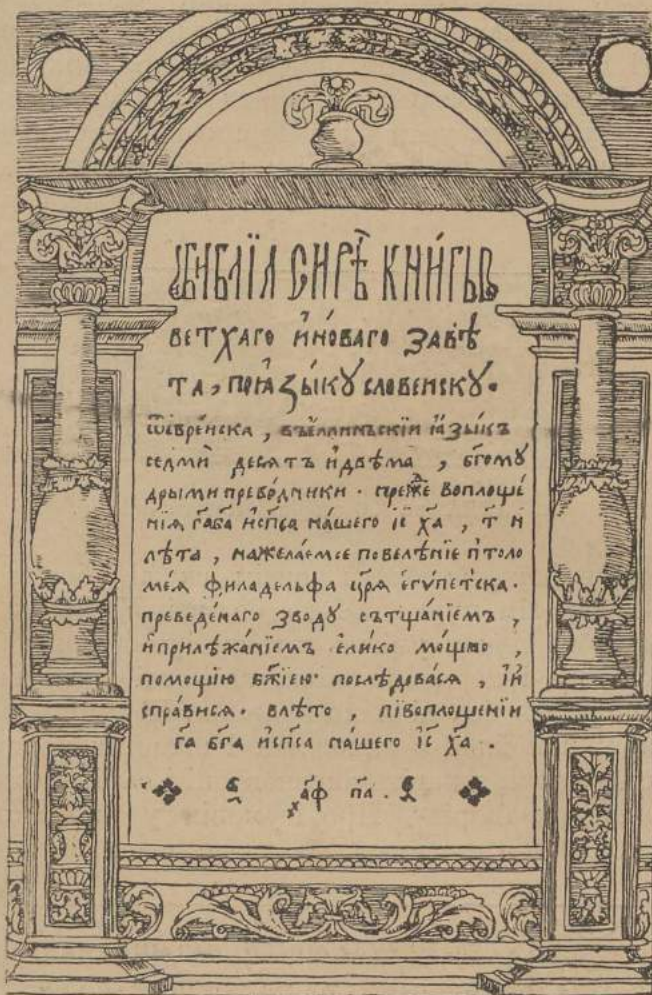 БИБЛЇА СИРѢ КНИ́ГЫ
ВЕТХАГО ИНОВАГО ЗАВѢ
ТА, ПОꙖЗЫКУ СЛОВЕНСКУ.
ѿеврейска, въеллинъскїи ꙗзыкъ
седми десятъ идвѣма, бг҃ому
дрыми преводники. преже воплоще
нїѧ га҃ бг҃а испс҃а нашего іс҃ ха҃, т҃ и
лѣта, нажелаемое повелѣнїе птоло
меѧ филаделѳа цр҃ѧ єгѵпетска.
преведенаго зводу сътщанїемъ,
иприлѣжанїемъ елико мощно,
помощїю бж҃їею послѣдовасѧ, їи
справисѧ. влѣто, повоплощенїи
га҃ бг҃а испс҃а нашего іс҃ ха҃.
҂аф҃ па҃.